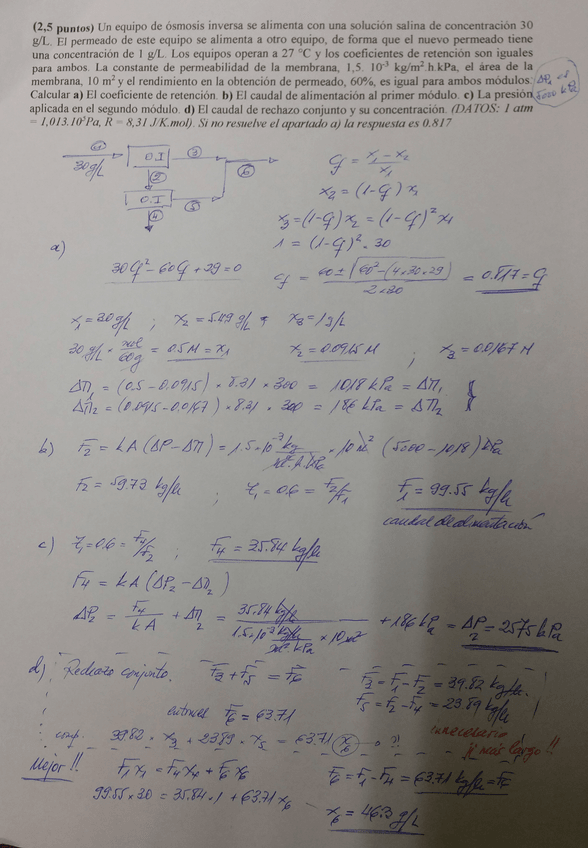 (2,5 puntos) Un equipo de ósmosis inversa se alimenta con una solución salina de concentración 30
g/L. El permeado de este equipo se alimenta a otro equipo, de forma que el nuevo permeado tiene
una concentración de 1 g/L. Los equipos operan a 27 °C y los coeficientes de retención son iguales
para ambos. La constante de permeabilidad de la membrana, 1,5. 10⁻³ kg/m².h.kPa, el área de la
membrana, 10 m² y el rendimiento en la obtención de permeado, 60%, es igual para ambos módulos.
Calcular a) El coeficiente de retención. b) El caudal de alimentación al primer módulo. c) La presión
aplicada en el segundo módulo. d) El caudal de rechazo conjunto y su concentración. (DATOS: 1 atm
= 1,013.10⁵Pa, R = 8,31 J/K.mol). Si no resuelve el apartado a) la respuesta es 0.817
ΔP₁
5000 kPa
① 30g/L O.I ③
② O.I ④ ⑤ ⑥
φ = (x₁ - x₂)/x₁
x₂ = (1-φ) x₁
x₃ = (1-φ) x₂ = (1-φ)² x₁
a) 1 = (1-φ)² · 30
30φ² - 60φ + 29 = 0 φ = (60 ± √(60² - (4×30×29)))/(2×30) = 0.817 = φ
x₁ = 30 g/L ; x₂ = 5.49 g/L x₃ = 1 g/L
30 g/L × mol/60g = 0.5M = x₁ x₂ = 0.0915 M ; x₃ = 0.0167 M
Δπ₁ = (0.5 - 0.0915) × 8.31 × 300 = 1018 kPa = Δπ₁
Δπ₂ = (0.0915 - 0.0167) × 8.31 × 300 = 186 kPa = Δπ₂
b) F₂ = kA (ΔP - Δπ) = 1.5×10⁻³ kg/m².h.kPa × 10 m² (5000 - 1018) kPa
F₂ = 59.73 kg/h ; η₁ = 0.6 = F₂/F₁ F₁ = 99.55 kg/h
caudal de alimentación
c) η₁ = 0.6 = F₄/F₂ ; F₄ = 35.84 kg/h
F₄ = kA (ΔP₂ - Δπ₂)
ΔP₂ = F₄/kA + Δπ₂ = 35.84 kg/h / (1.5×10⁻³ kg/h/m².kPa × 10 m²) + 186 kPa = ΔP₂ = 2575 kPa
d) Rechazo conjunto. F₃ + F₅ = F₆ F₃ = F₁ - F₂ = 39.82 kg/h.
F₅ = F₂ - F₄ = 23.89 kg/h
entonces F₆ = 63.71
comp. 39.82 × x₃ + 23.89 × x₅ = 63.71 x₆ → ??
innecesario
y más largo!!
Mejor!! F₁x₁ = F₄x₄ + F₆x₆ F₆ = F₁ - F₄ = 63.71 kg/h = F₆
99.55×30 = 35.84×1 + 63.71 x₆ x₆ = 46.3 g/L